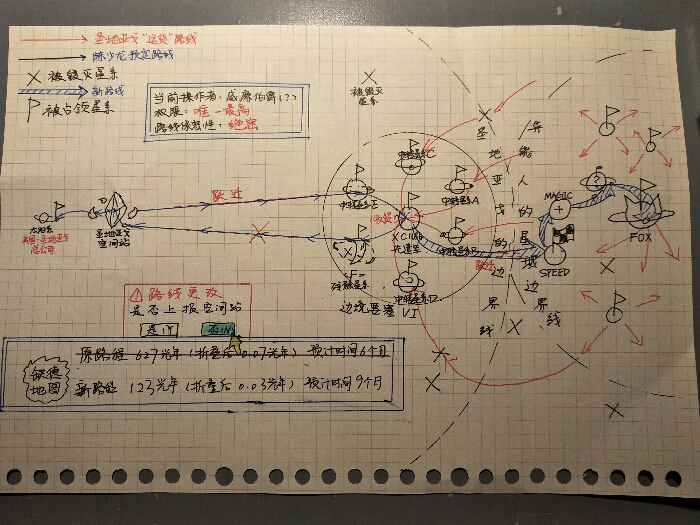 圣地亚戈"运货"路线
陈少龙预定路线
新路线
被毁灭星系
被占领星系
当前操作者：威廉伯爵(?)
权限：唯一最高
路线保密性：绝密
被毁灭
星系
圣地亚戈的边界线
异能人的星域边界线
中转星系C
中转星系E
中转星系A
中转星系B
中转星系D
跃迁
太阳系
圣地亚戈
空间站
总公司
残骸星系
边境要塞 VI
跃迁
MAGIC
SPEED
FOX
路线更改
是否上报空间站
是(Y)
否(N)
缺德
地图
原路径 627光年(折叠后0.07光年) 预计时间6个月
新路径 123光年(折叠后0.03光年) 预计时间9个月